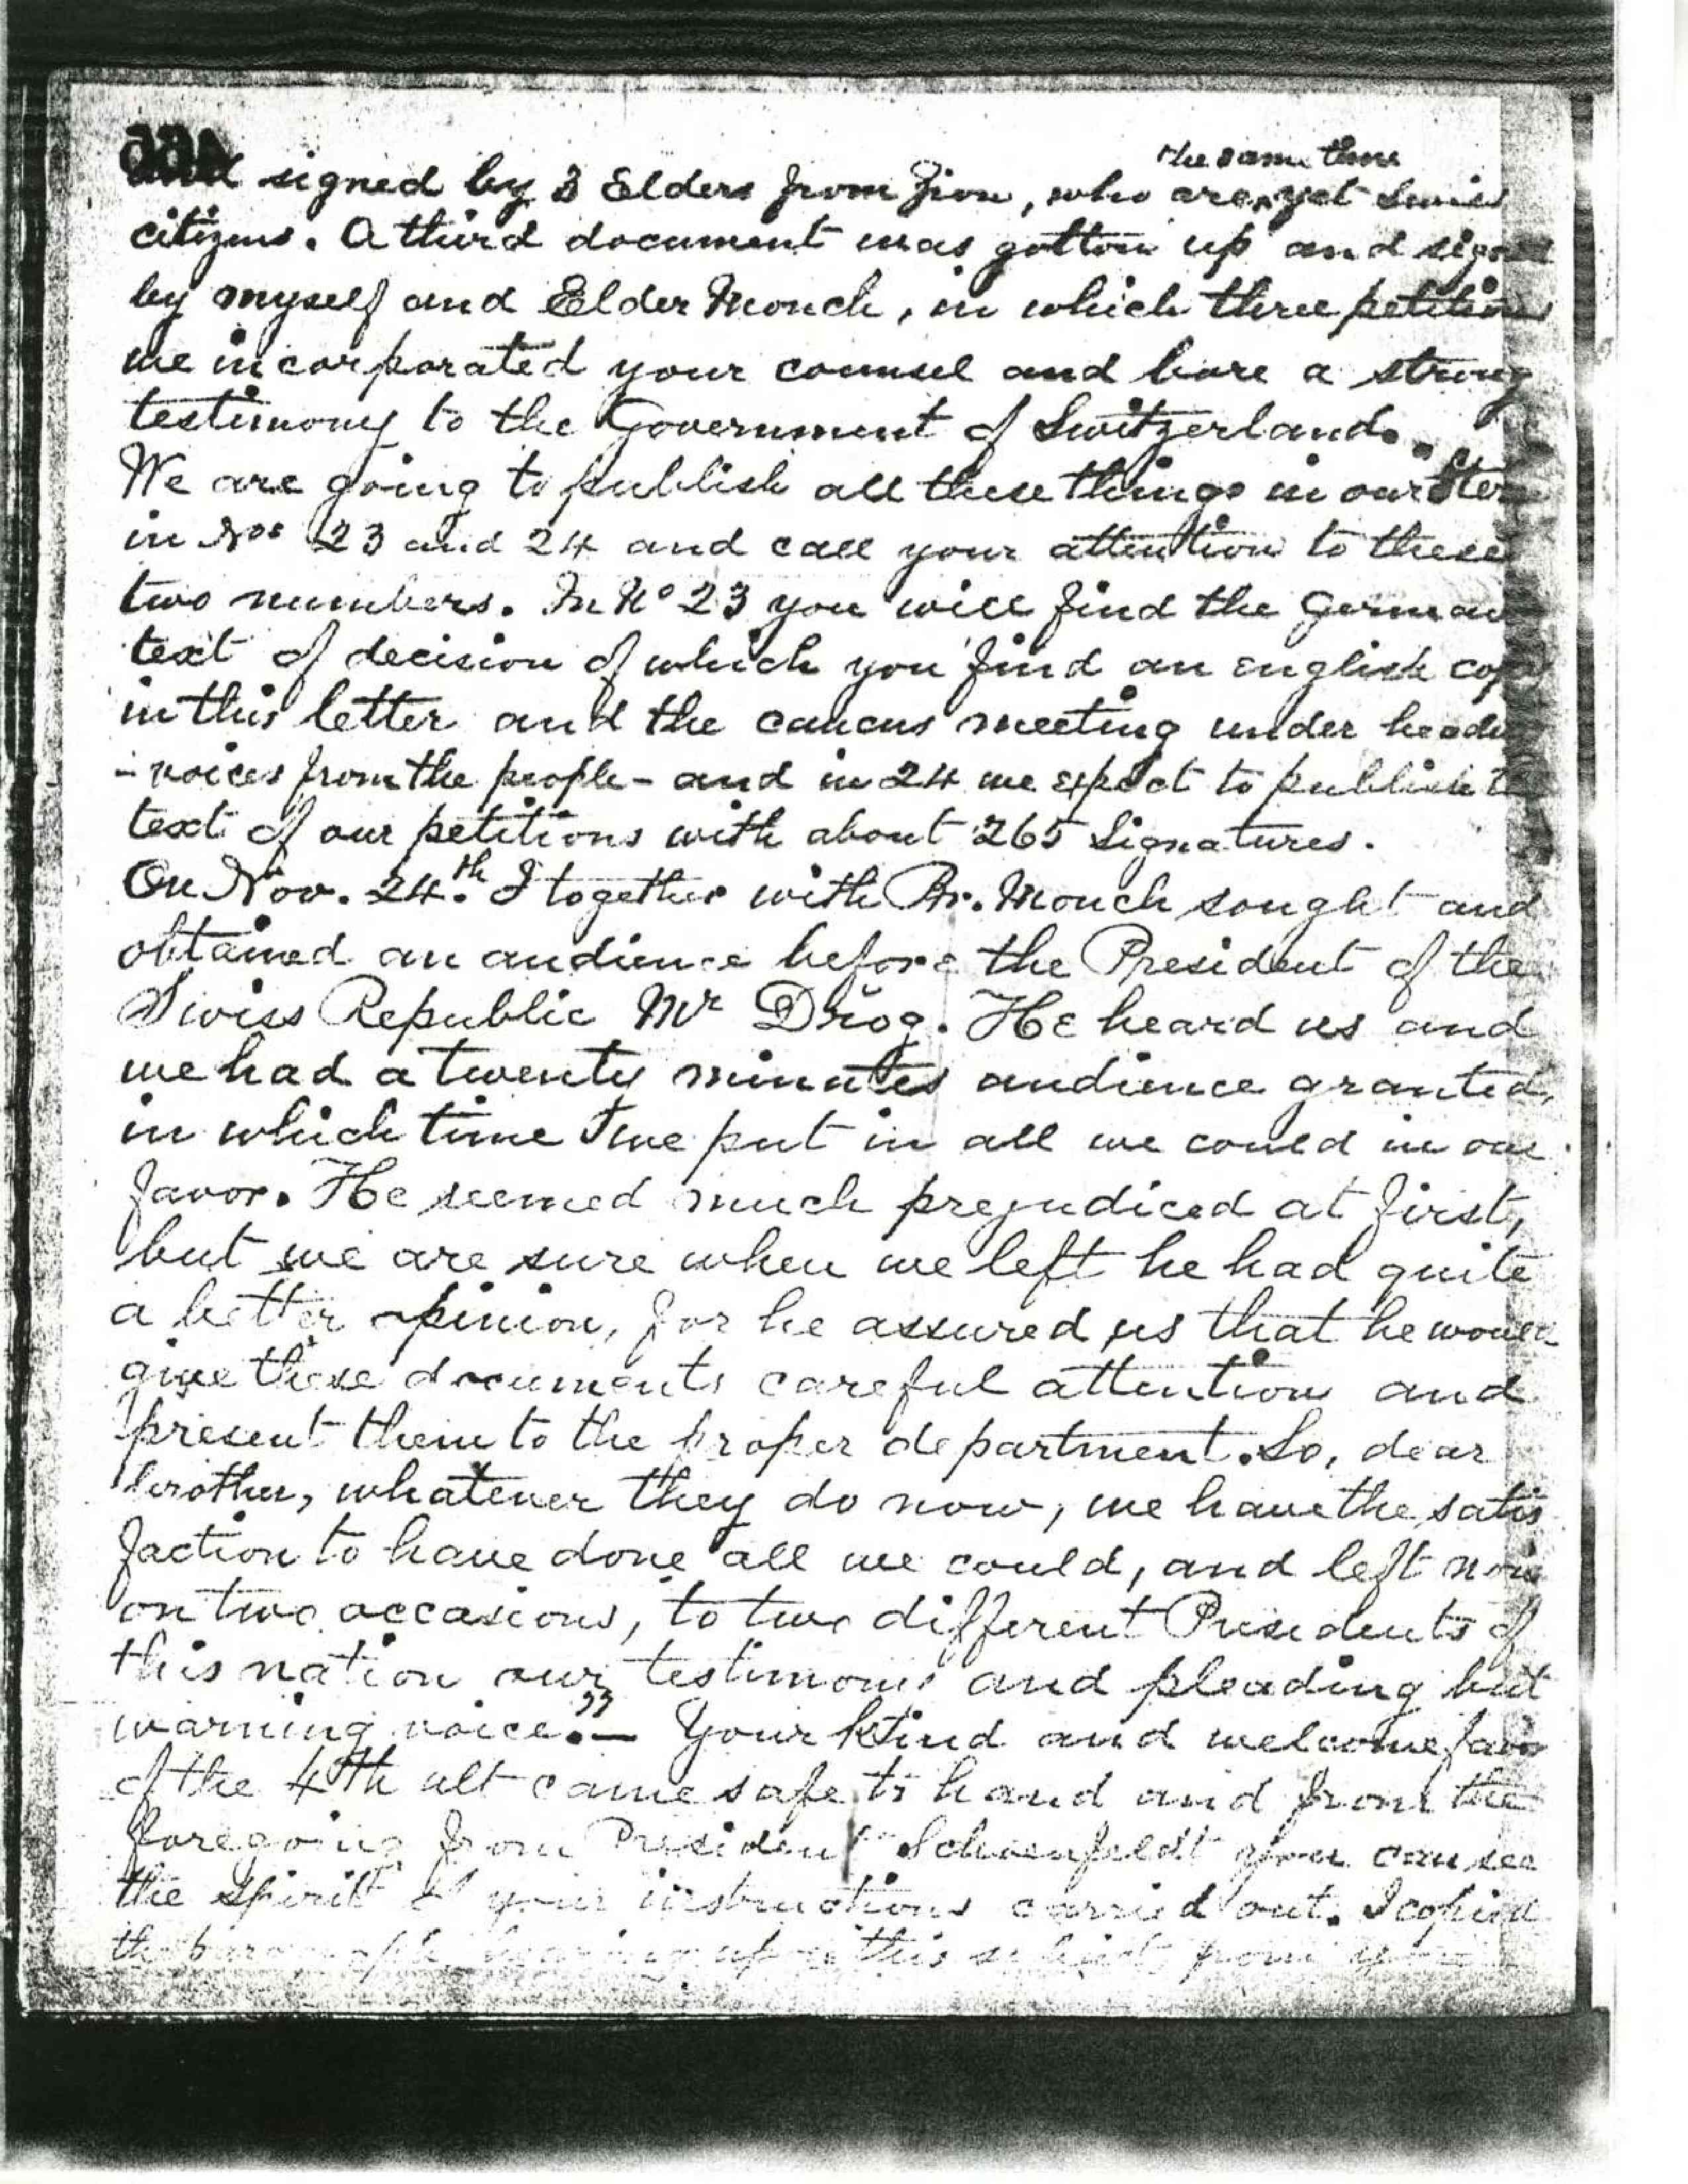 and signed by 3 Elders from Zion, who are the same time yet Swiss
citizens. A third document was gotton up and signed
by myself and Elder Monch, in which three petitions
we incorporated your counsel and bore a strong
testimony to the Government of Switzerland.
We are going to publish all these things in our Stern
in Nos 23 and 24 and call your attention to these
two numbers. In No 23 you will find the German
text of decision of which you find an english copy
in this letter and the caucus meeting under heading
- voices from the people - and in 24 we expect to publish the
text of our petitions with about 265 Signatures.
On Nov. 24.th I together with Br. Monch sought and
obtained an audience before the President of the
Swiss Republic Mr Droz. He heard us and
we had a twenty minutes audience granted,
in which time we put in all we could in our
favor. He seemed much prejudiced at first,
but we are sure when we left he had quite
a better opinion, for he assured us that he would
give these documents careful attention and
present them to the proper department. So, dear
brother, whatever they do now, we have the satis
faction to have done all we could, and left now
on two occasions, to two different Presidents of
this nation our testimony and pleading but
warning voice." — Your kind and welcome favor
of the 4th ult came safe to hand and from the
foregoing from President Schoenfeldt you can see
the spirit of your instructions carried out. I copied
the paragraph bearing upon this subject from your